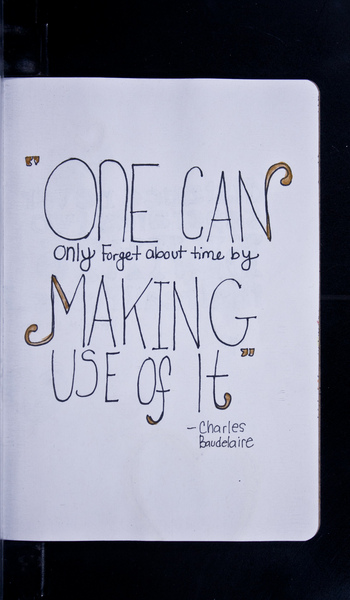 "ONE CAN
only Forget about time by
MAKING
USE Of It"
- Charles
Baudelaire